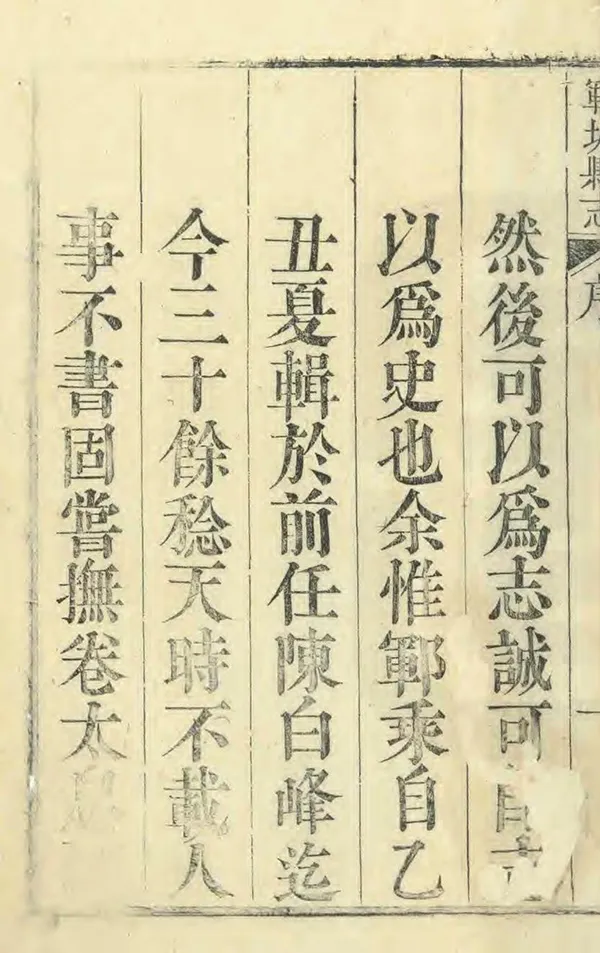 鄆城縣志 序 一
然後可以爲志誠可
以爲史也余惟鄆乘自乙
丑夏輯於前任陳白峰迄
今三十餘稔天時不載人
事不書固嘗撫卷太